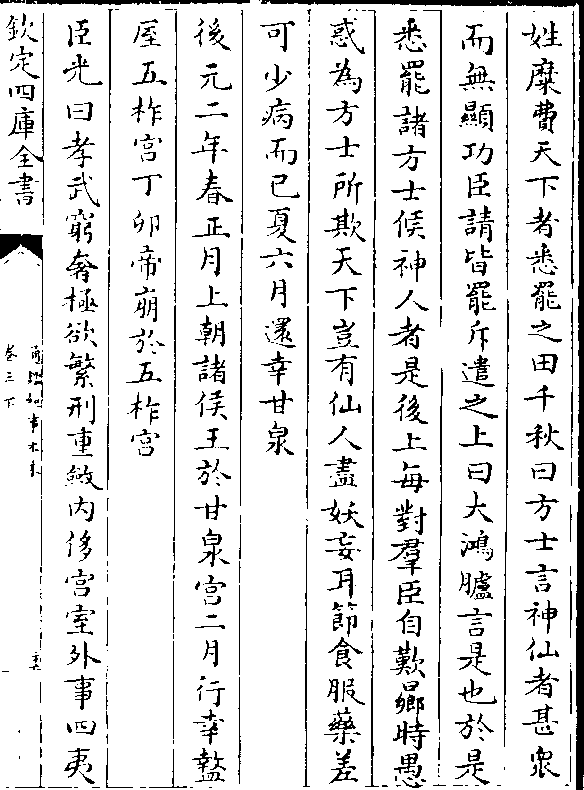 姓糜費天下者悉罷之田千秋曰方士言神仙者甚衆
而無顯功臣請皆罷斥遣之上曰大鴻臚言是也於是
悉罷諸方士候神人者是後上每對羣臣自歎曏時愚
惑為方士所欺天下豈有仙人盡妖妄耳節食服藥差
可少病而已夏六月還幸甘泉
後元二年春正月上朝諸侯王於甘泉宮二月行幸盩
厔五柞宮丁卯帝崩於五柞宮
臣光曰孝武窮奢極欲繁刑重斂内侈宮室外事四夷
欽定四庫全書
通鑑紀事本末
卷三下